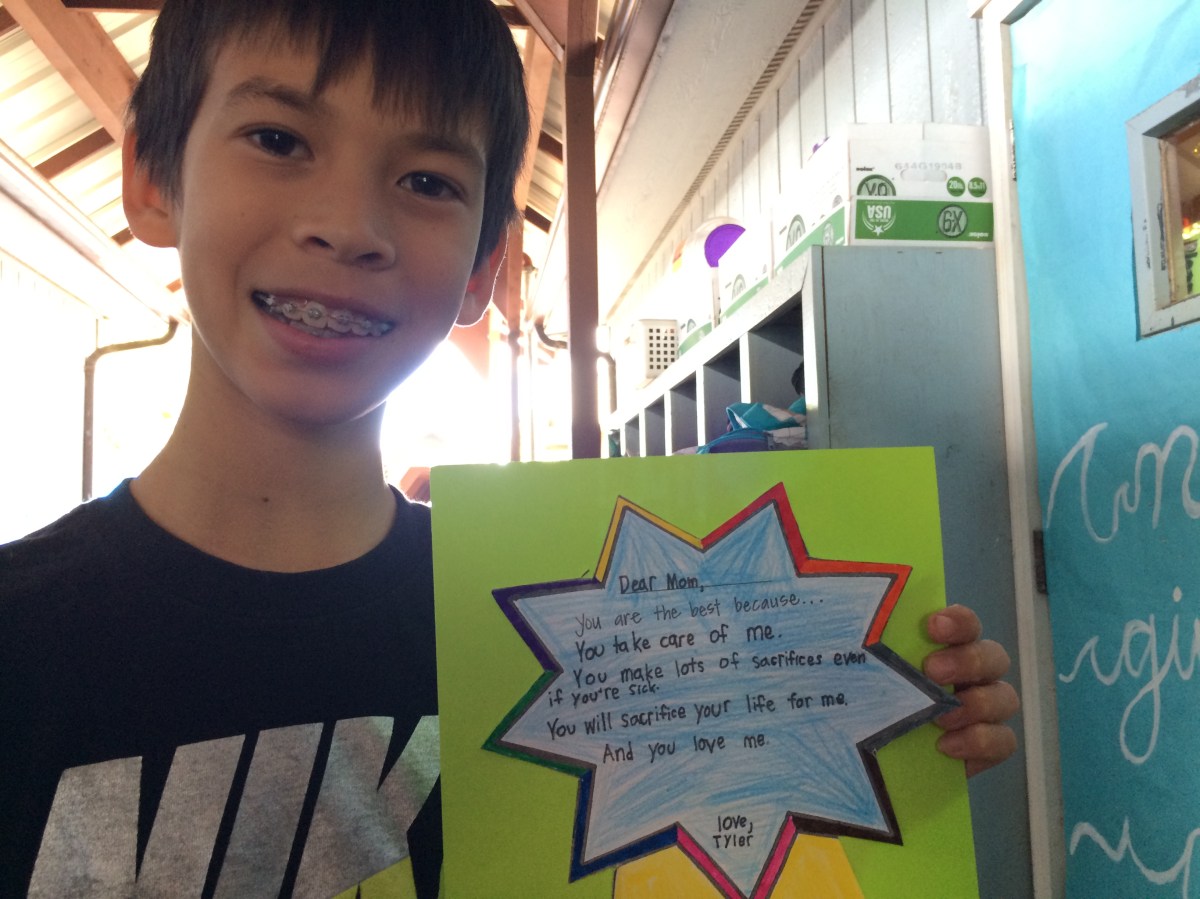 Dear Mom,
You are the best because...
You take care of me.
You make lots of sacrifices even
if you're sick.
You will sacrifice your life for me.
And you love me.
love,
Tyler
NIK
644G1994B
20lb
8.5x11
USA
GX